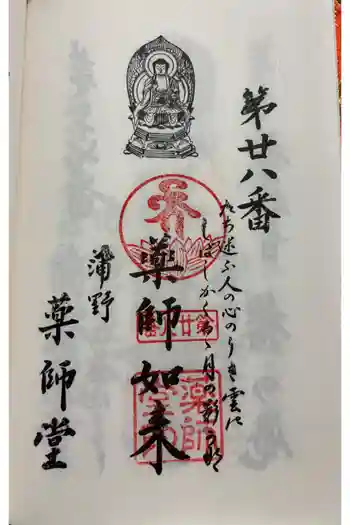 第廿八番
たち迷ふ人の心のうき雲に
しばしかくるゝ月の影
薬師如来
第廿八番
薬師
蒲野
薬師堂